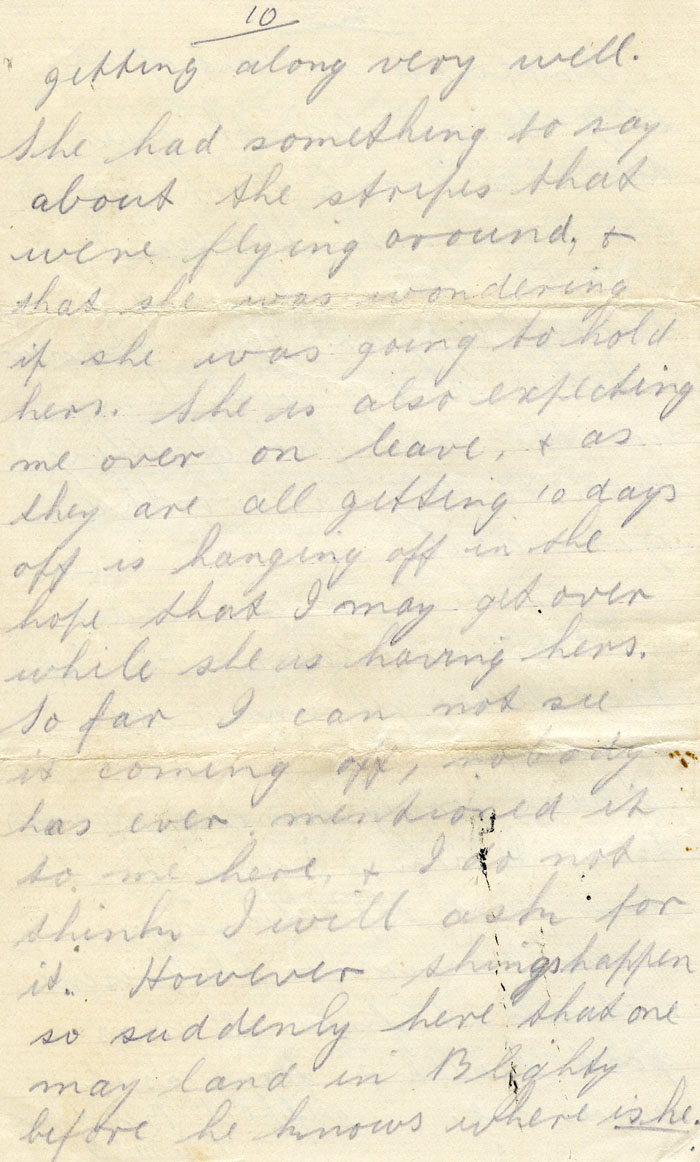 10
getting along very well.
She had something to say
about the stripes that
were flying around, &
that she was wondering
if she was going to hold
hers. She is also expecting
me over on leave, & as
they are all getting 10 days
off is hanging off in the
hope that I may get over
while she is having hers.
So far I can not see
it coming off, nobody
has ever mentioned it
to me here, & I do not
think I will ask for
it. However things happen
so suddenly here that one
may land in Blighty
before he knows where is he.